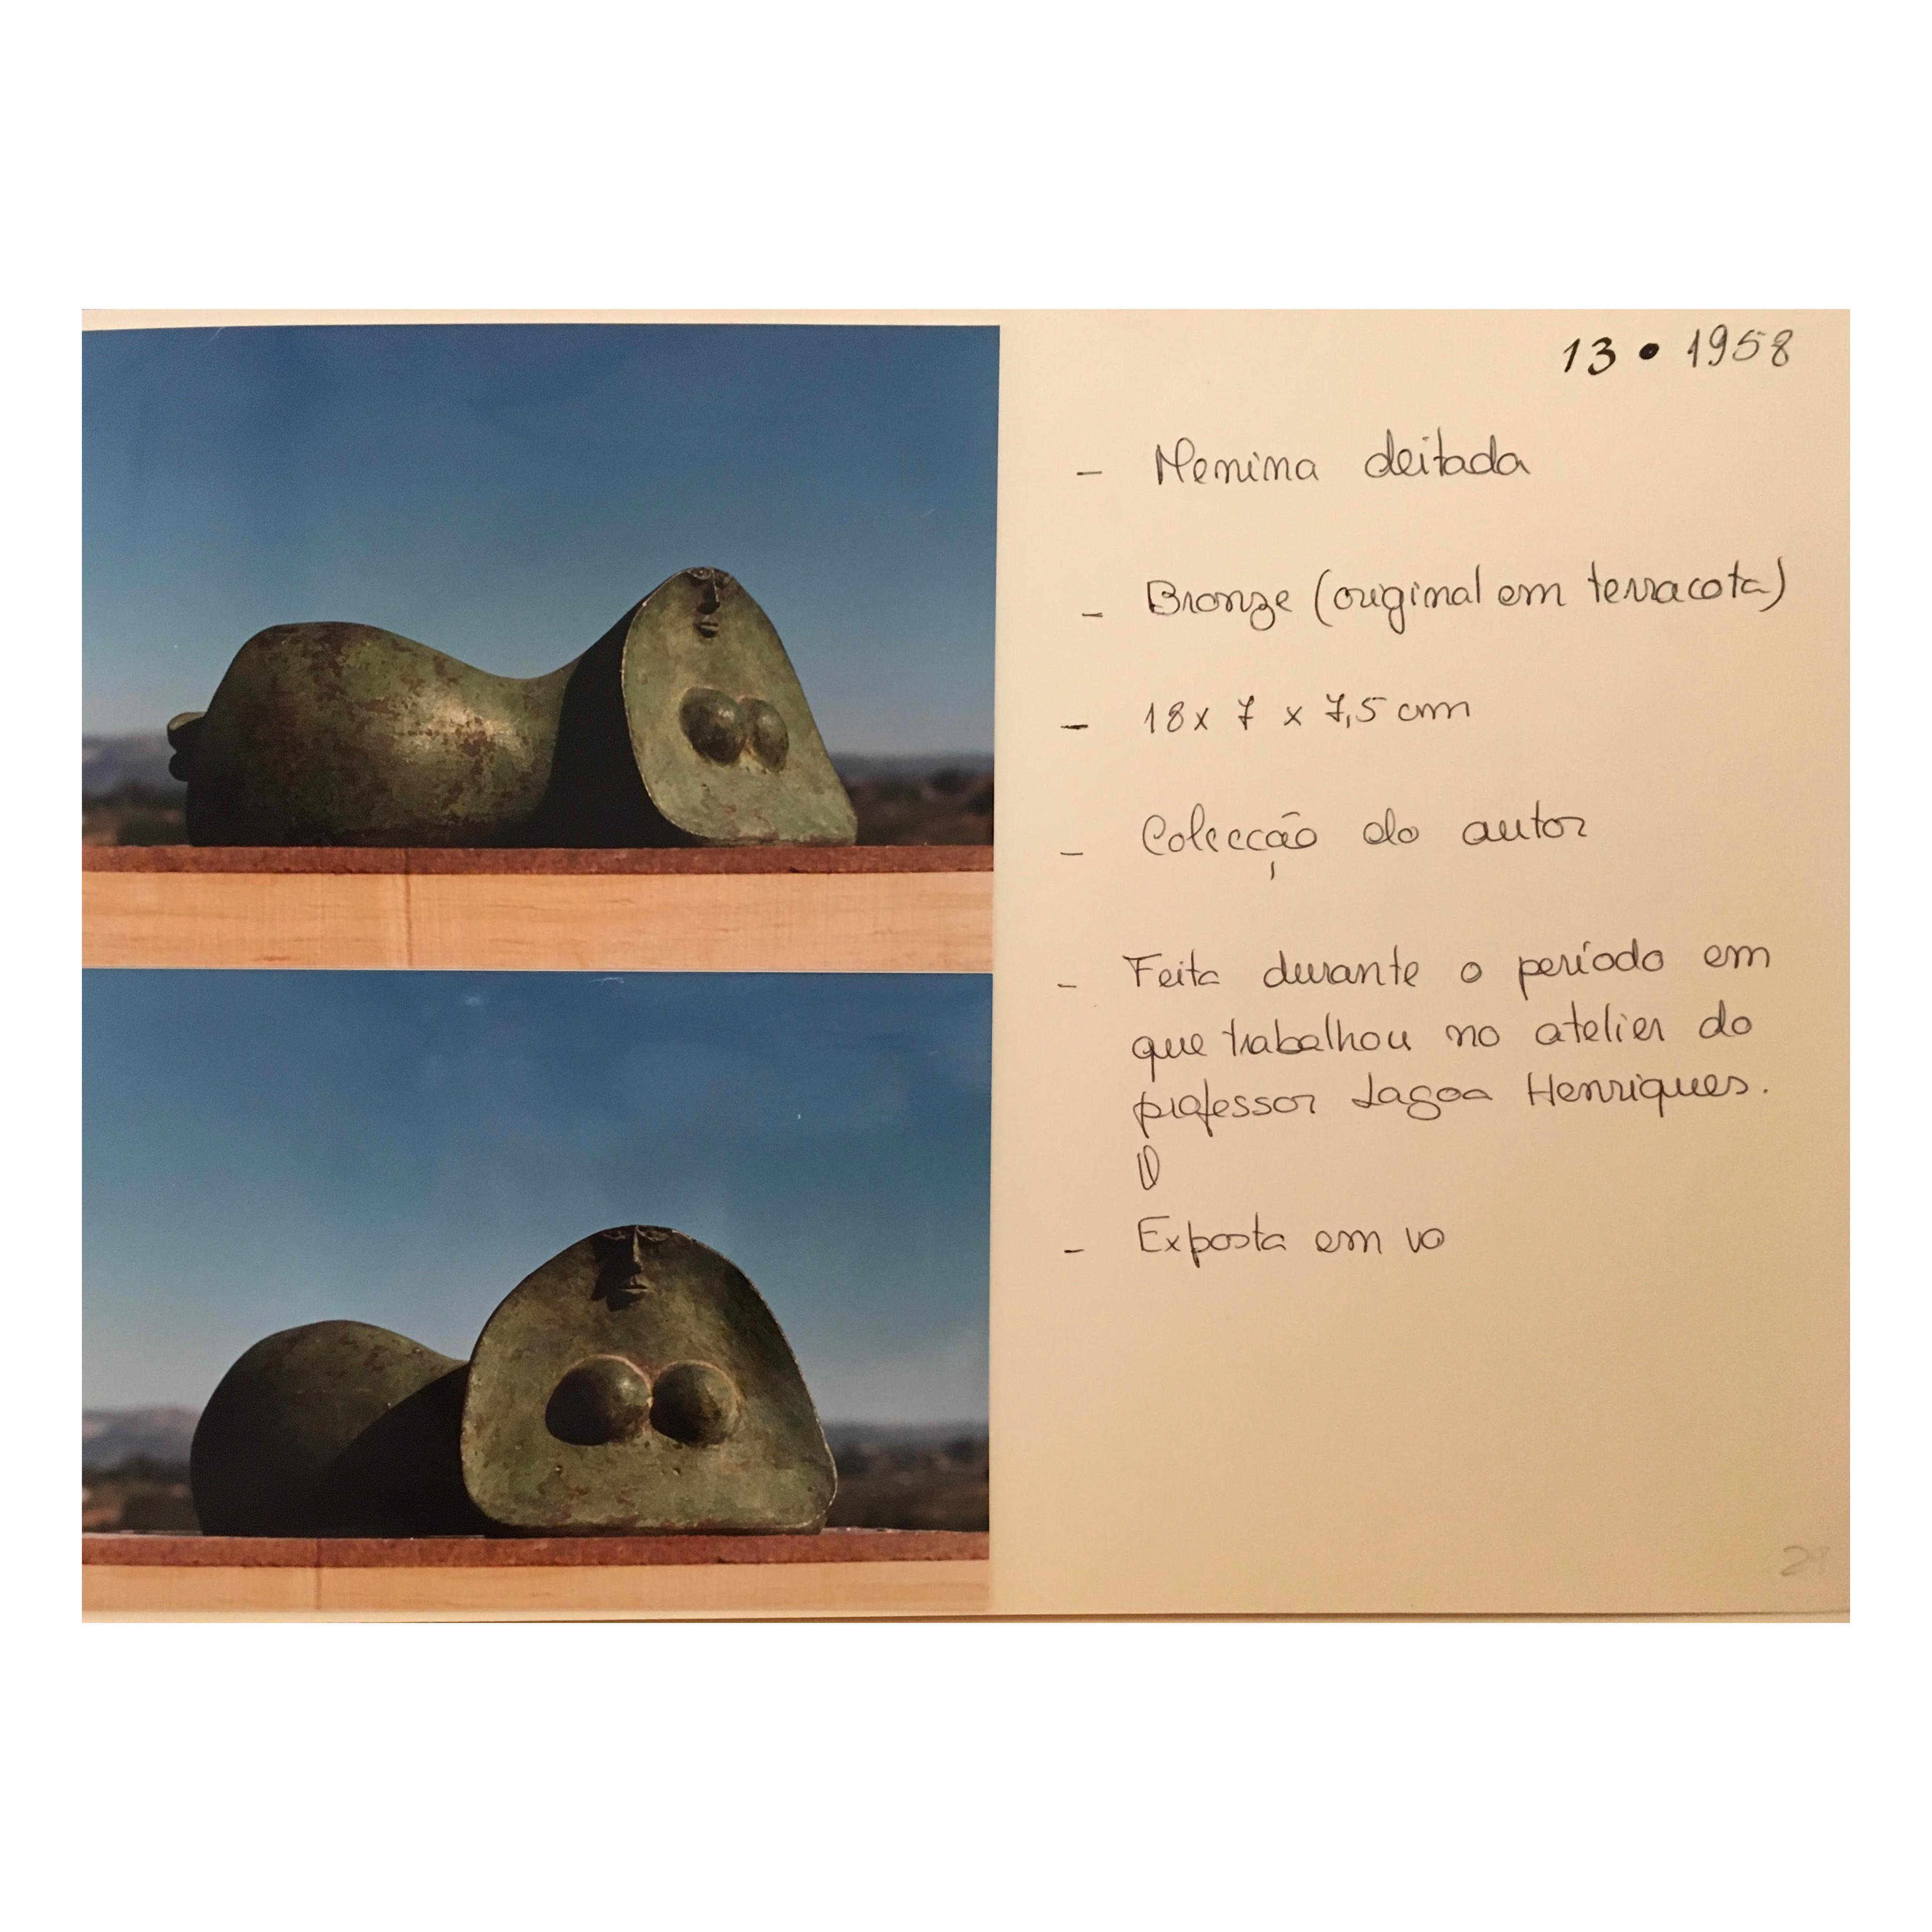 13 • 1958
- Menina deitada
- Bronze (original em terracota)
- 18 x 7 x 7,5 cm
- Colecção do autor
- Feita durante o período em
que trabalhou no atelier do
professor Lagoa Henriques.
- Exposta em